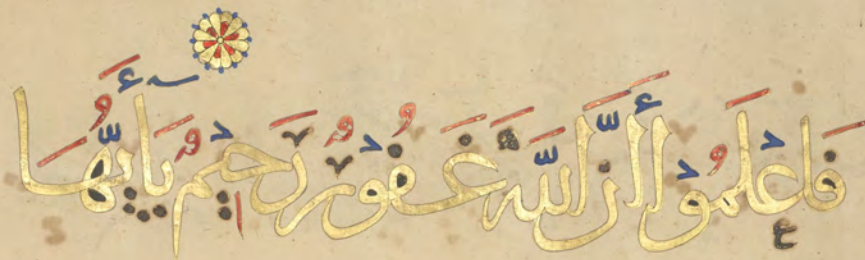 فَاعْلَمُوْا أَنَّ اللّٰهَ غَفُوْرٌ رَحِيْمٌ يَأَيُّهَا